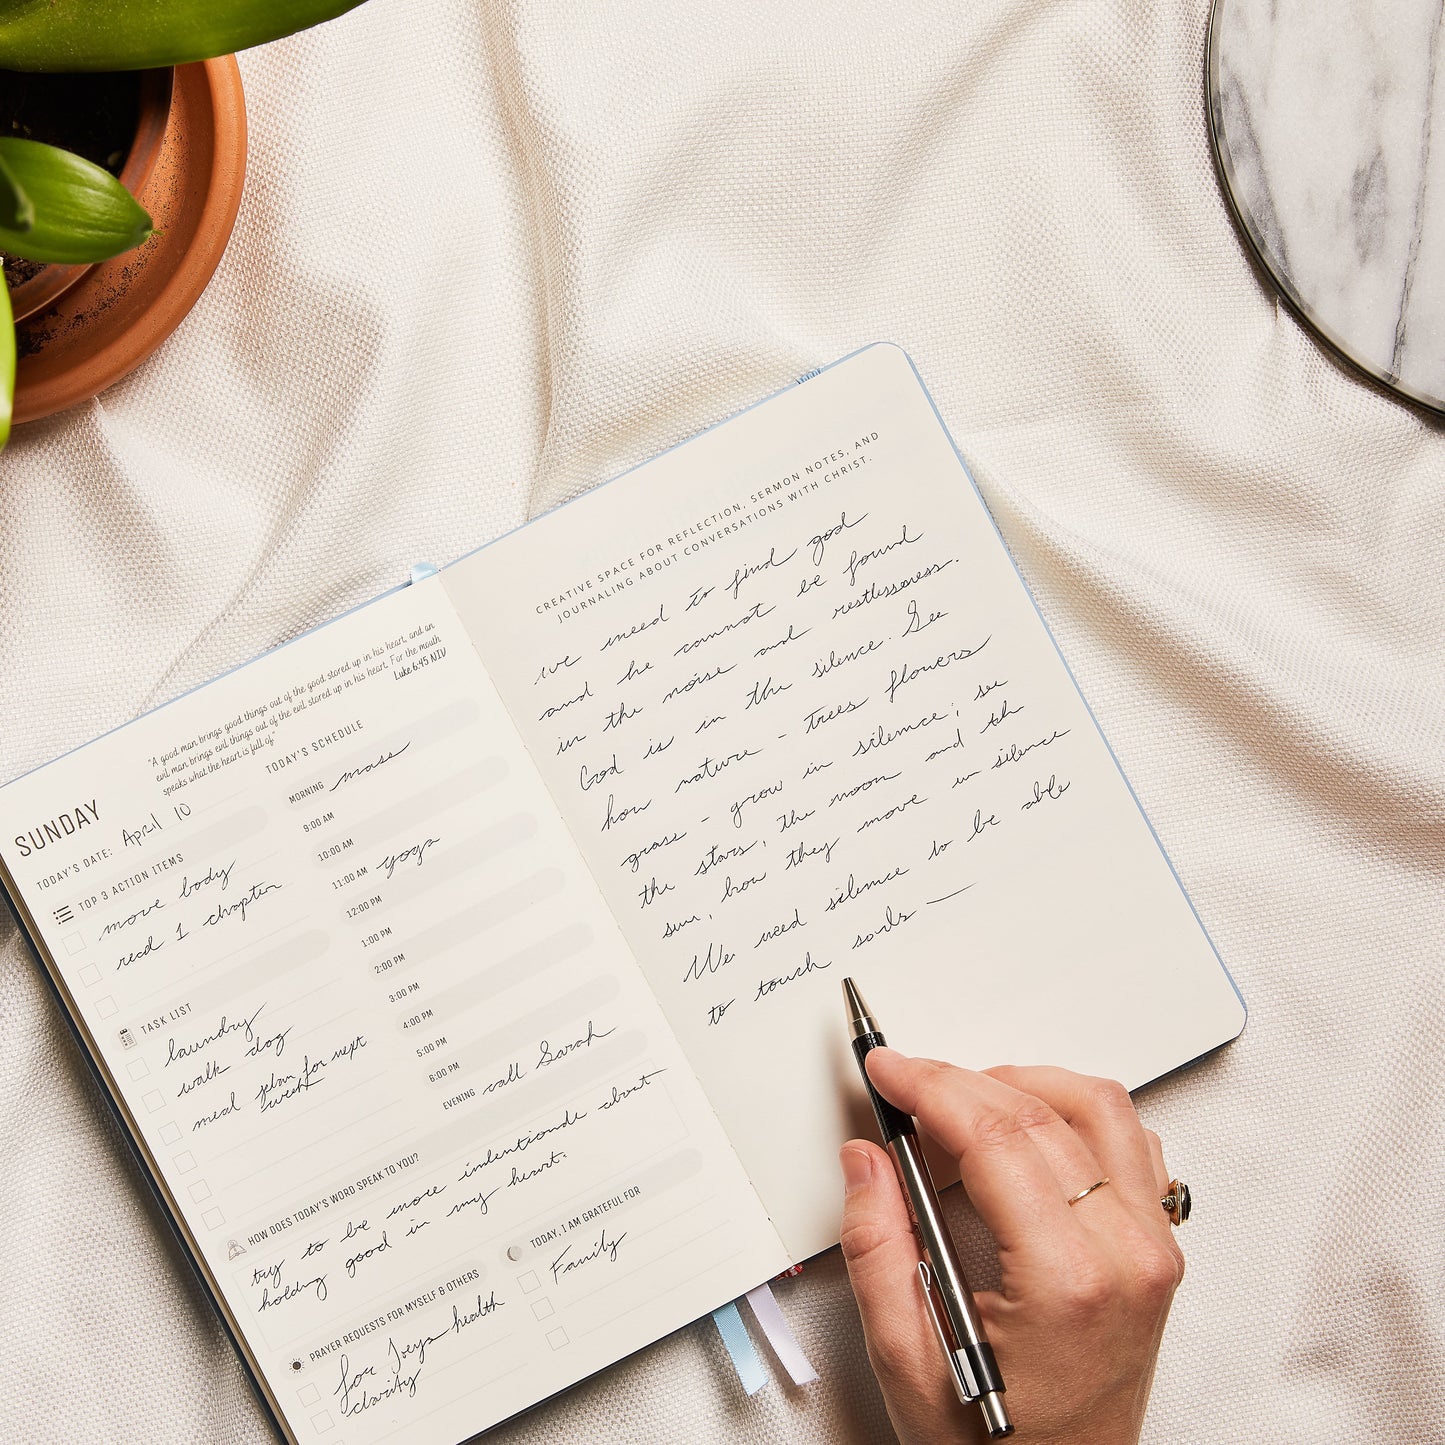 "A good man brings good things out of the good stored up in his heart, and an
evil man brings evil things out of the evil stored up in his heart. For the mouth
speaks what the heart is full of."
Luke 6:45 NIV
SUNDAY
TODAY'S DATE: April 10
TOP 3 ACTION ITEMS
move body
read 1 chapter
TASK LIST
laundry
walk dog
meal plan for next
week
TODAY'S SCHEDULE
MORNING mass
9:00 AM
10:00 AM
11:00 AM yoga
12:00 PM
1:00 PM
2:00 PM
3:00 PM
4:00 PM
5:00 PM
6:00 PM
EVENING call Sarah
HOW DOES TODAY'S WORD SPEAK TO YOU?
try to be more intentionde about
holding good in my heart.
PRAYER REQUESTS FOR MYSELF & OTHERS
for Joeys health
clarity
TODAY, I AM GRATEFUL FOR
Family
CREATIVE SPACE FOR REFLECTION, SERMON NOTES, AND
JOURNALING ABOUT CONVERSATIONS WITH CHRIST.
we need to find god
and he cannot be found
in the noise and restlessness.
God is in the silence. See
how nature - trees flowers
grass - grow in silence; see
the stars, the moon and th
sun, how they move in silence
We need silence to be able
to touch souls —